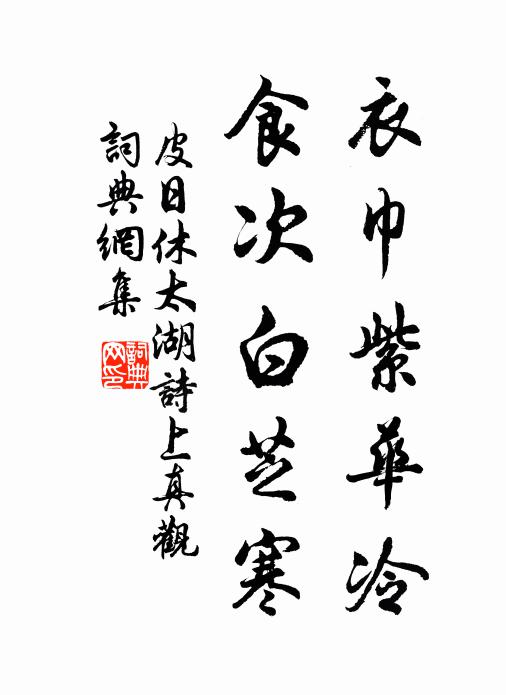 衣巾紫華冷
食次白芝寒
皮日休太湖詩上真觀
詞典網集
詞典网印